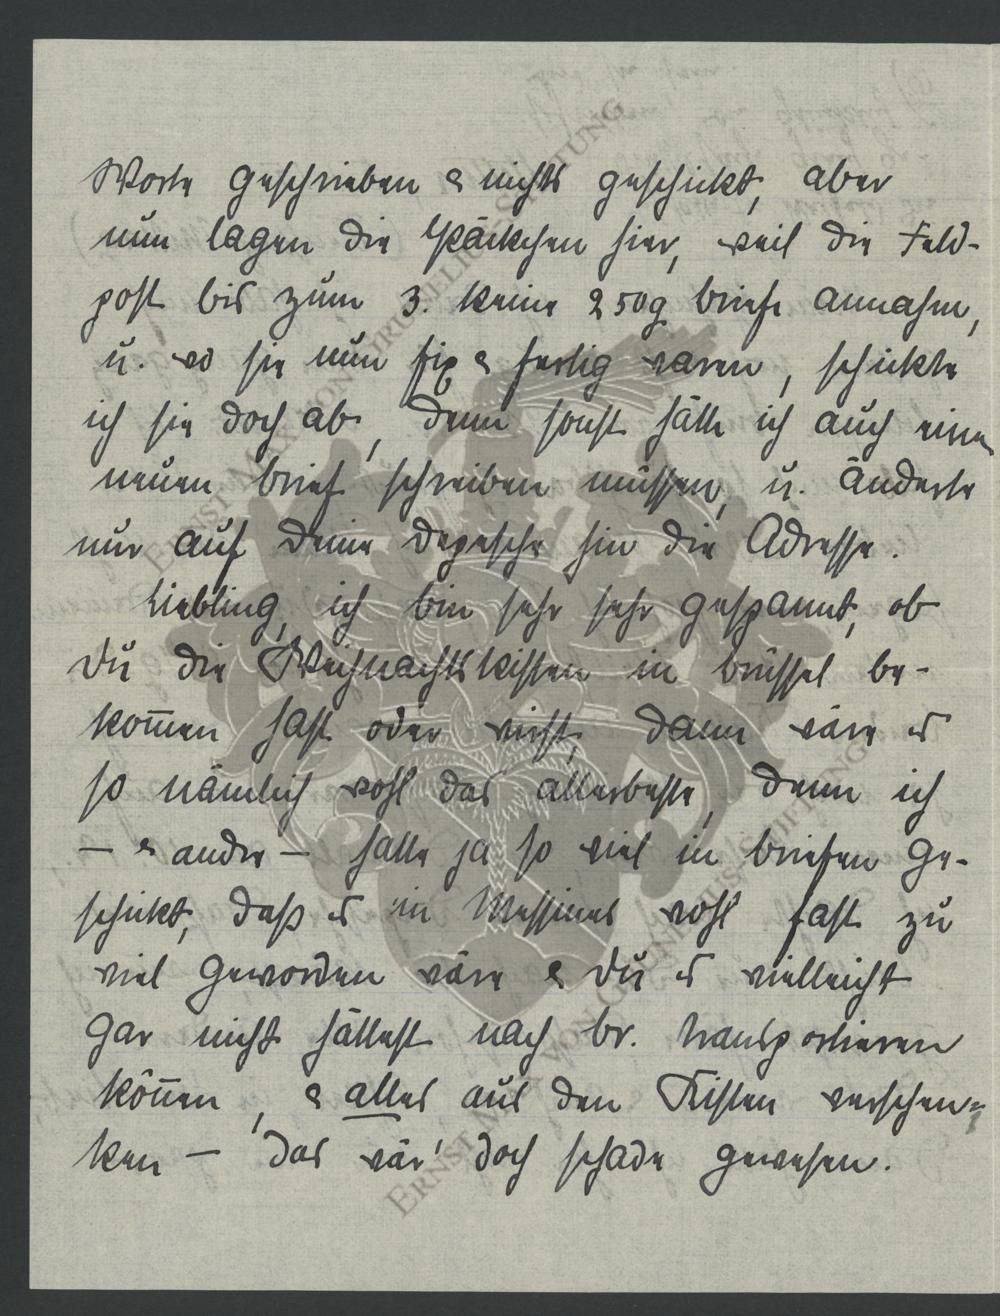 Worte geschrieben & nichts geschickt, aber
nun lagen die Päckchen hier, weil die Feld-
post bis zum 3. keine 250g briefe annahm,
u. wo sie nun fix & fertig waren, schickte
ich sie doch ab, denn sonst hätte ich auch einen
neuen brief schreiben müssen, u. änderte
nur auf Deine Depesche hin die Adresse.
Liebling, ich bin sehr sehr gespannt, ob
Du die Weihnachtskisten in brüssel be-
kom̅en hast oder nicht, dann wäre es
so nämlich wohl das allerbeste, denn ich
— & andre — hatte ja so viel in briefen ge-
schickt, daß es in Messines wohl fast zu
viel geworden wäre & Du es vielleicht
gar nicht hättest nach br. transportieren
kön̅en, & alles aus den Kisten verschen=
ken — das wär' doch schade gewesen.
ERNST MAX VON GRUNELIUS STIFTUNG
ERNST MAX VON GRUNELIUS STIFTUNG